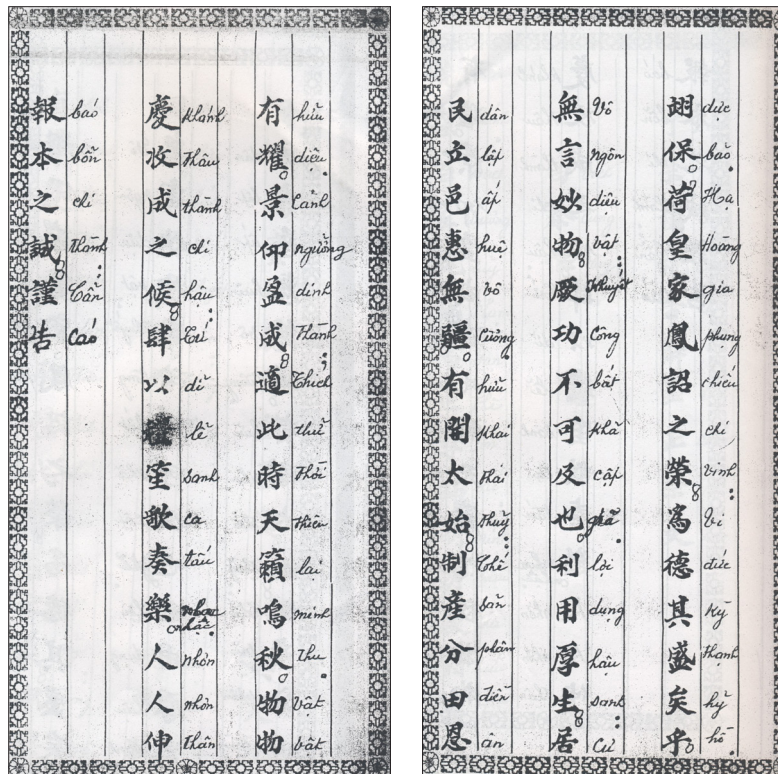 翊保荷皇家鳳詔之榮為德其盛矣乎
dực bảo Hạ Hoàng gia phụng chiếu chi vinh Vi đức kỳ thạnh hỹ hồ
無言妙物厥功不可及也利用厚生居
Vô ngôn diệu vật khuyết Công bất khả cập giả lợi dụng hậu sanh Cư
民立邑惠無疆有開太始制產分田恩
dân lập ấp huệ vô Cương hữu khai thái thuỷ Chế sản phân điền ân
有耀景仰盈成適此時天籟鳴秋物物
hữu diệu Cảnh ngưỡng dinh thành Thích thử thời thiên lai minh thu vật vật
慶收成之候肆以笙歌奏樂人人伸
Khánh thâu thành chi hậu Tứ dĩ lễ sanh ca tấu nhạc nhơn nhơn thân
報本之誠謹告
báo bổn chi thành Cẩn Cáo